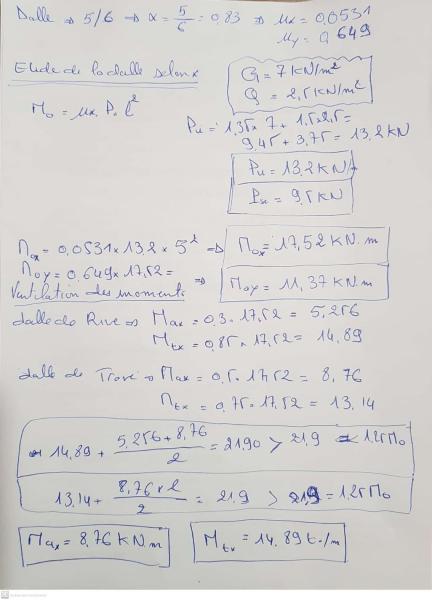 Dalle ⇒ 5/6 ⇒ α = 5/6 = 0,83 ⇒ μx = 0,0531
μy = 0,649
Etude de la dalle selon x
G = 7 KN/m²
Q = 2,5 KN/m²
M₀ = μx. Pu l²
Pu = 1,35 x 7 + 1,5 x 2,5 =
9,45 + 3,75 = 13,2 KN
Pu = 13,2 KN/
Ps = 9,5 KN
Mox = 0,0531 x 13,2 x 5² ⇒ Mox = 17,52 KN.m
Moy = 0,649 x 17,52 = ⇒ Moy = 11,37 KN.m
Ventilation des moments
dalle de Rive ⇒ Max = 0,3 . 17,52 = 5,256
Mtx = 0,85 . 17,52 = 14,89
dalle de Travé ⇒ Max = 0,5 . 17,52 = 8,76
Mtx = 0,75 . 17,52 = 13,14
14,89 + (5,256 + 8,76)/2 = 21,90 > 21,9 = 1,25 M₀
13,14 + (8,76 x 2)/2 = 21,9 > 21,9 = 1,25 M₀
Max = 8,76 KN.m
Mtx = 14,89 t./m